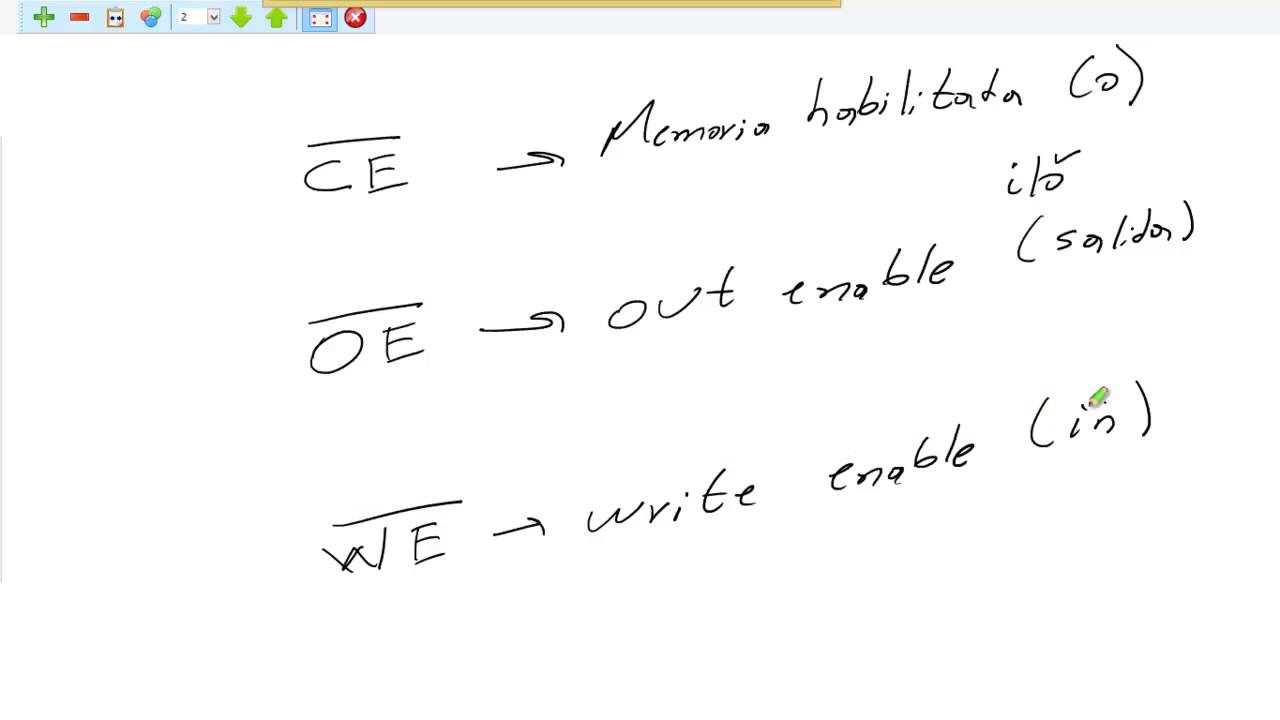 2
C̅E̅ → Memoria habilitada (0)
O̅E̅ → out enable (salida)
W̅E̅ → write enable (in)